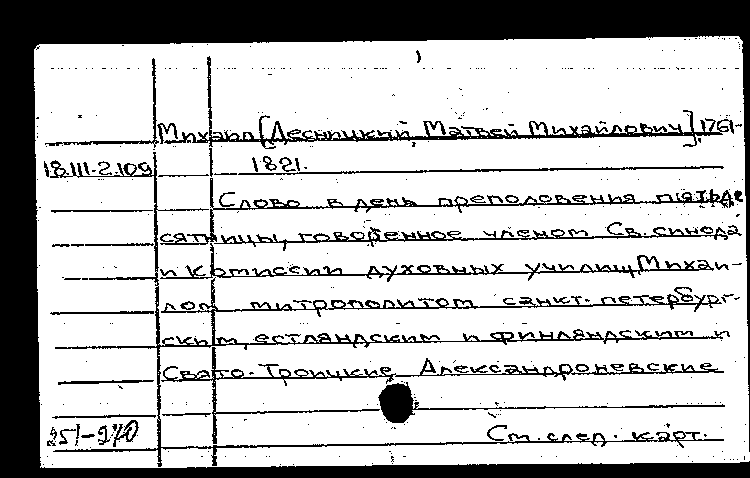 Михаил [Десницкий, Матвей Михайлович], 1761-
18.III-2.109 1821.
Слово в день преполовения пятьде
сятницы, говоренное членом Св. синода
и комиссии духовных училищ, Михаи-
лом митрополитом санкт-петербург-
ским, естляндским и финляндским и
Свято-Троицкие Александроневские
251-270
См. след. карт.